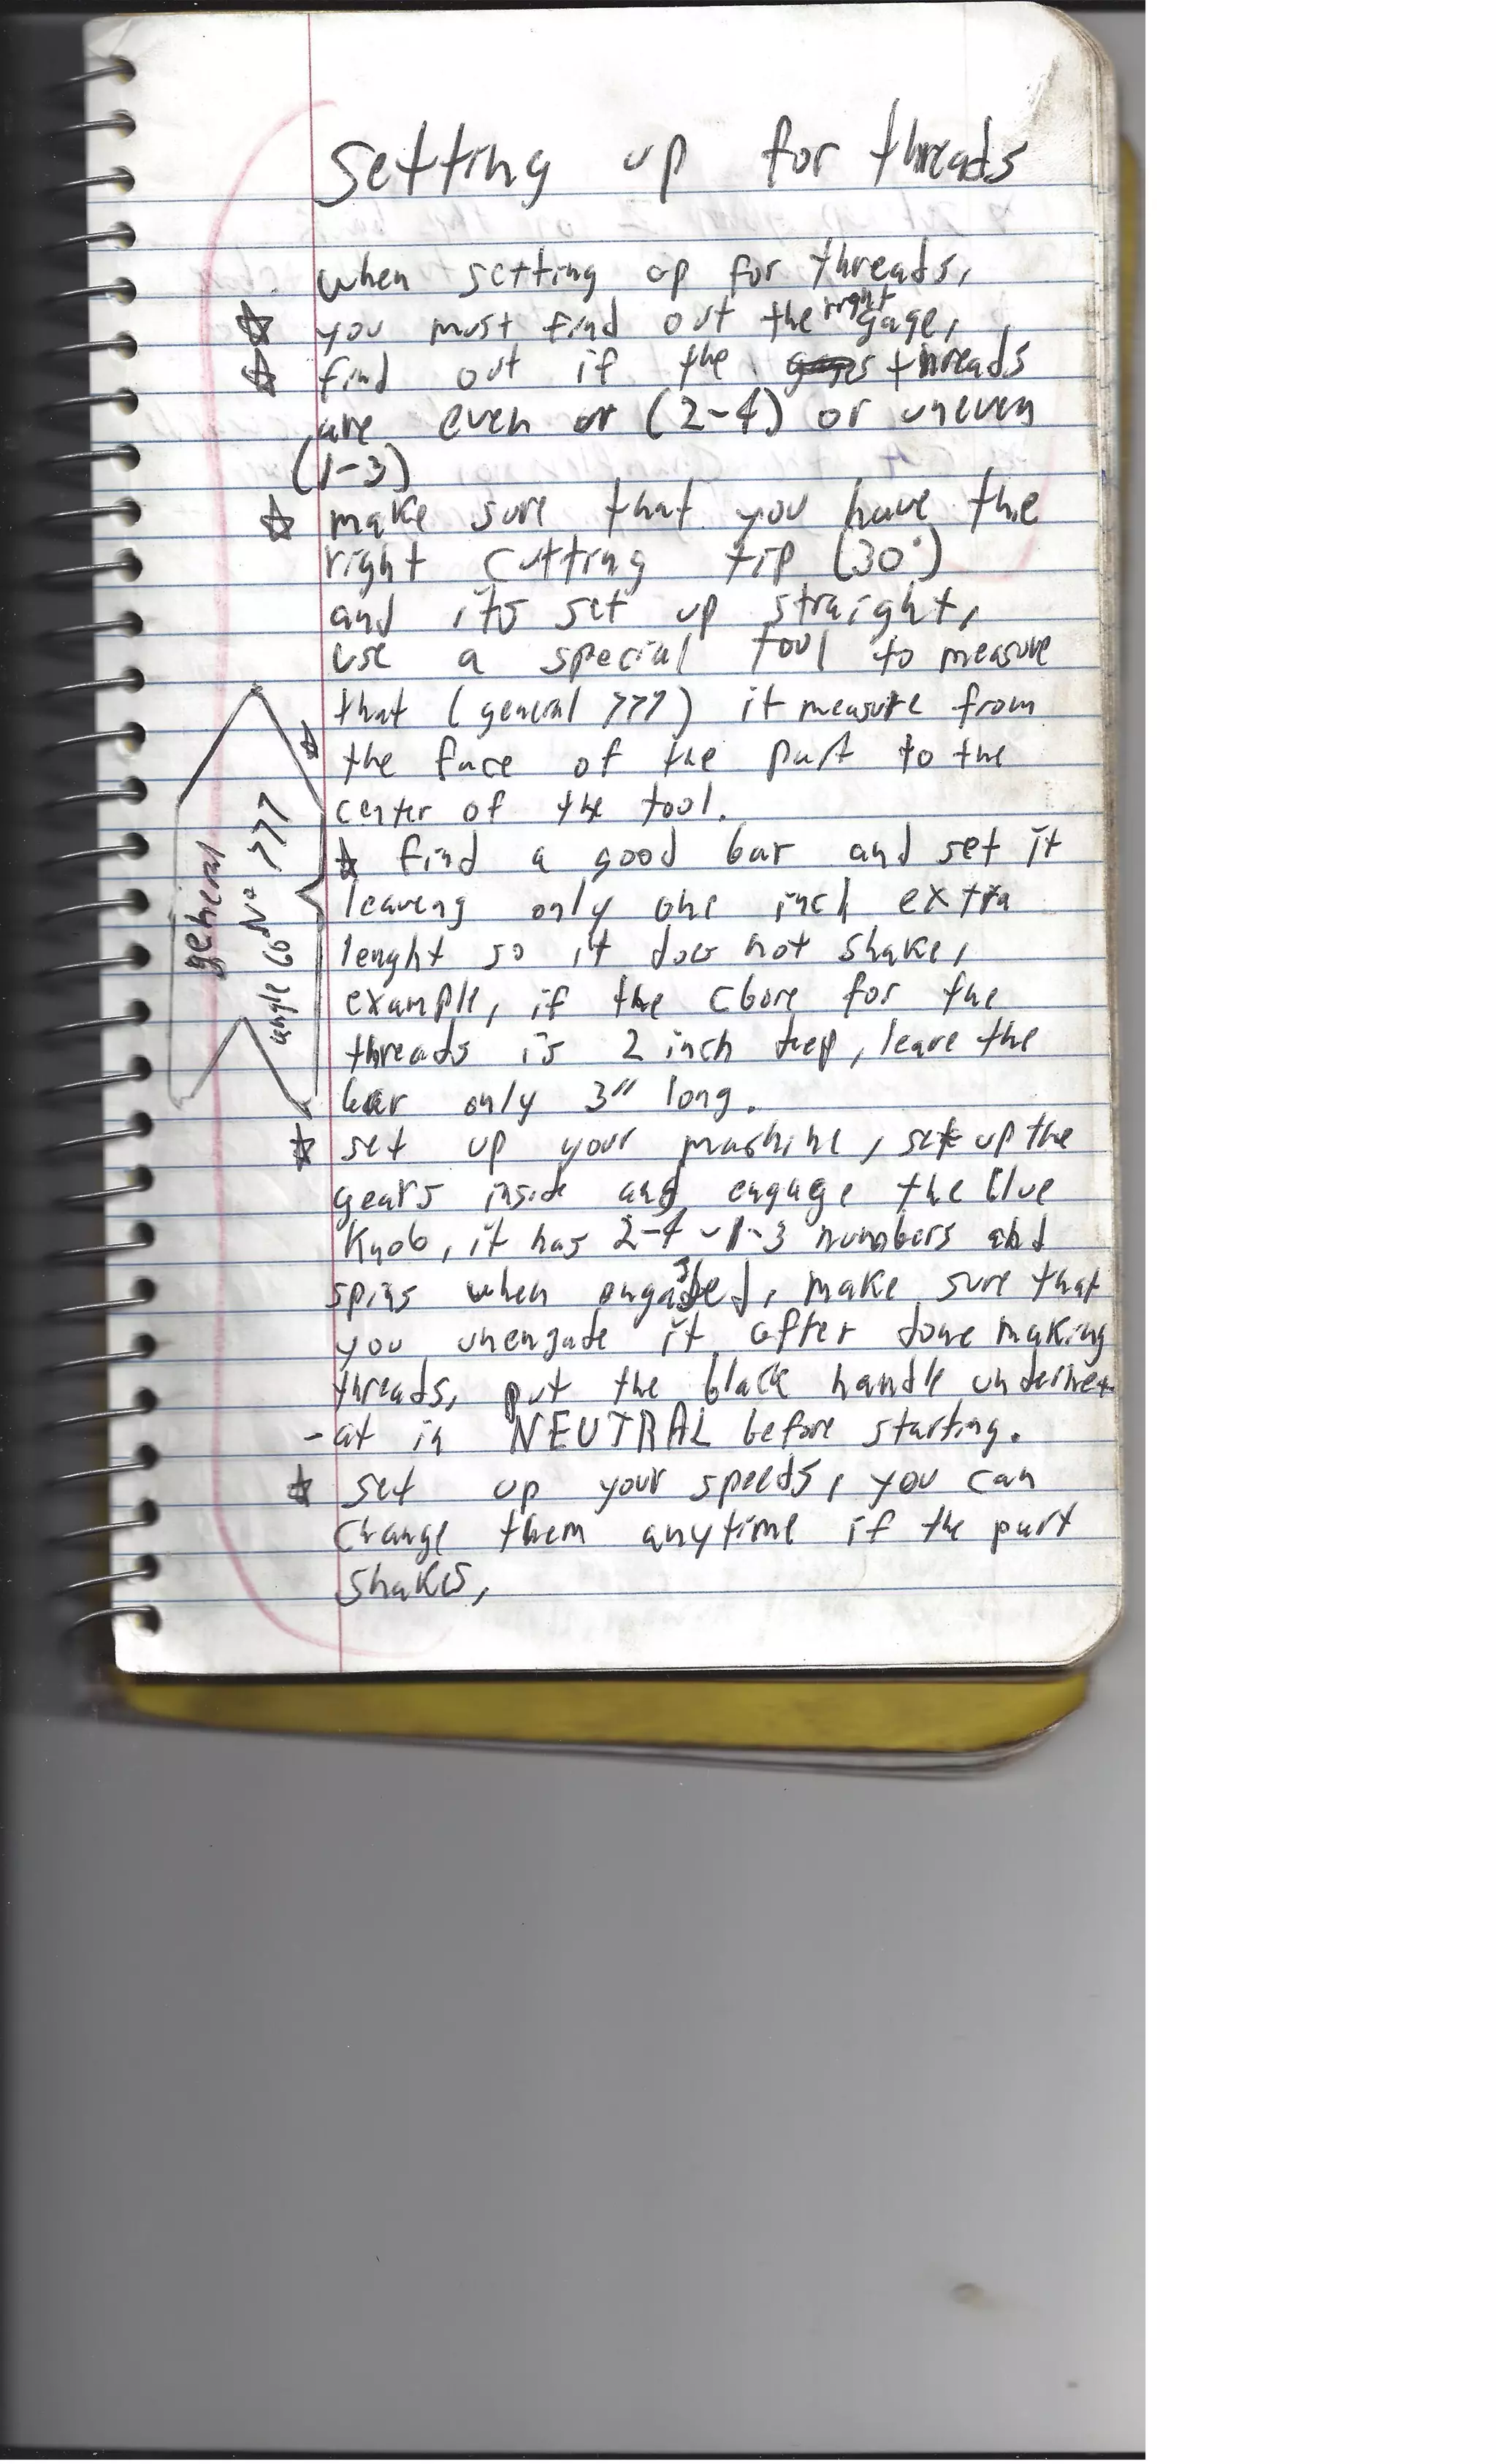 setting up for threads
when setting up for threads,
☆ you must find out the right gage,
☆ find out if the threads
are even or (2-4) or uneven
(1-3)
☆ make sure that you have the
right cutting tip (30°)
and its set up straight,
use a special tool to measure
that (general 777) it measure from
☆ the face of the part to the
center of the tool.
☆ find a good bar and set it
leaveng only one inch extra
lenght so it does not shake,
example, if the cbore for the
threads is 2 inch deep, leave the
bar only 3" long.
☆ set up your mashine, set up the
gears inside and engage the blue
knob, it has 2-4-1-3 numbers and
spins when engaged, make sure that
you unengade it after done making
threads, put the black handle undernet
-at in NEUTRAL before starting.
☆ set up your speeds, you can
change them anytime if the part
shakes,
general
No 777
angle 60°